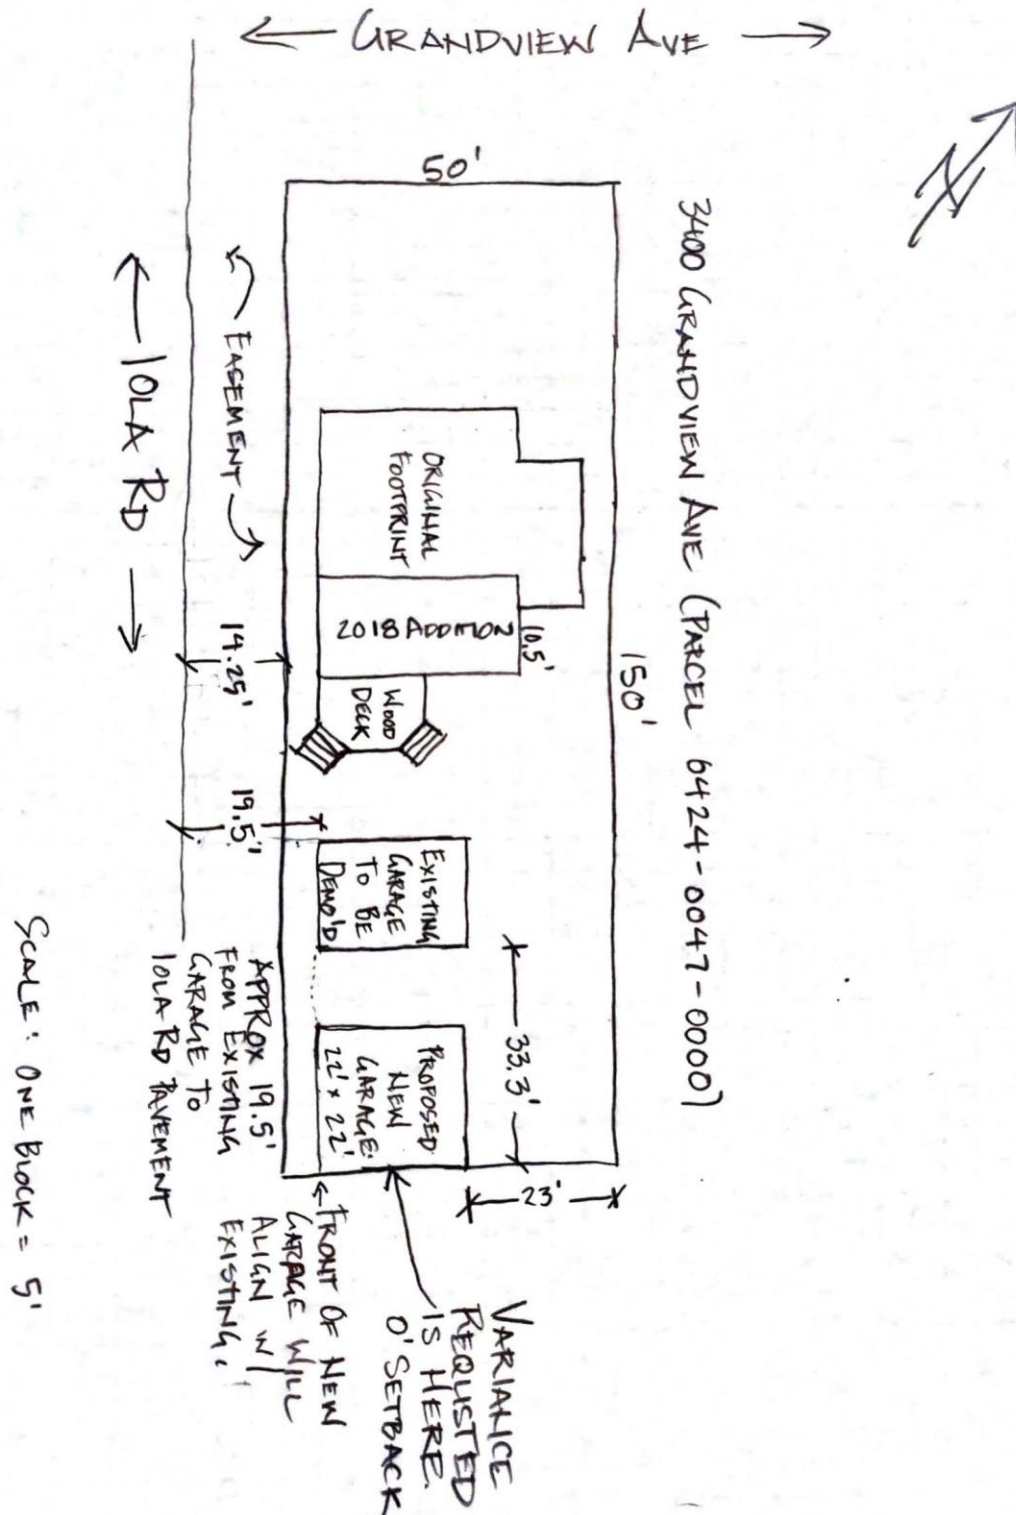 GRANDVIEW AVE
50'
3400 GRANDVIEW AVE (PARCEL 6424-0047-0000)
150'
EASEMENT
IOLA RD
ORIGINAL
FOOTPRINT
2018 ADDITION
10.5'
14.25'
WOOD
DECK
19.5'
EXISTING
GARAGE
TO BE
DEMO'D
33.3'
PROPOSED
NEW
GARAGE
22' x 22'
23'
APPROX 19.5'
FROM EXISTING
GARAGE TO
IOLA RD PAVEMENT
FRONT OF NEW
GARAGE WILL
ALIGN W/
EXISTING.
VARIANCE
REQUSTED
IS HERE.
0' SETBACK
SCALE: ONE BLOCK = 5'